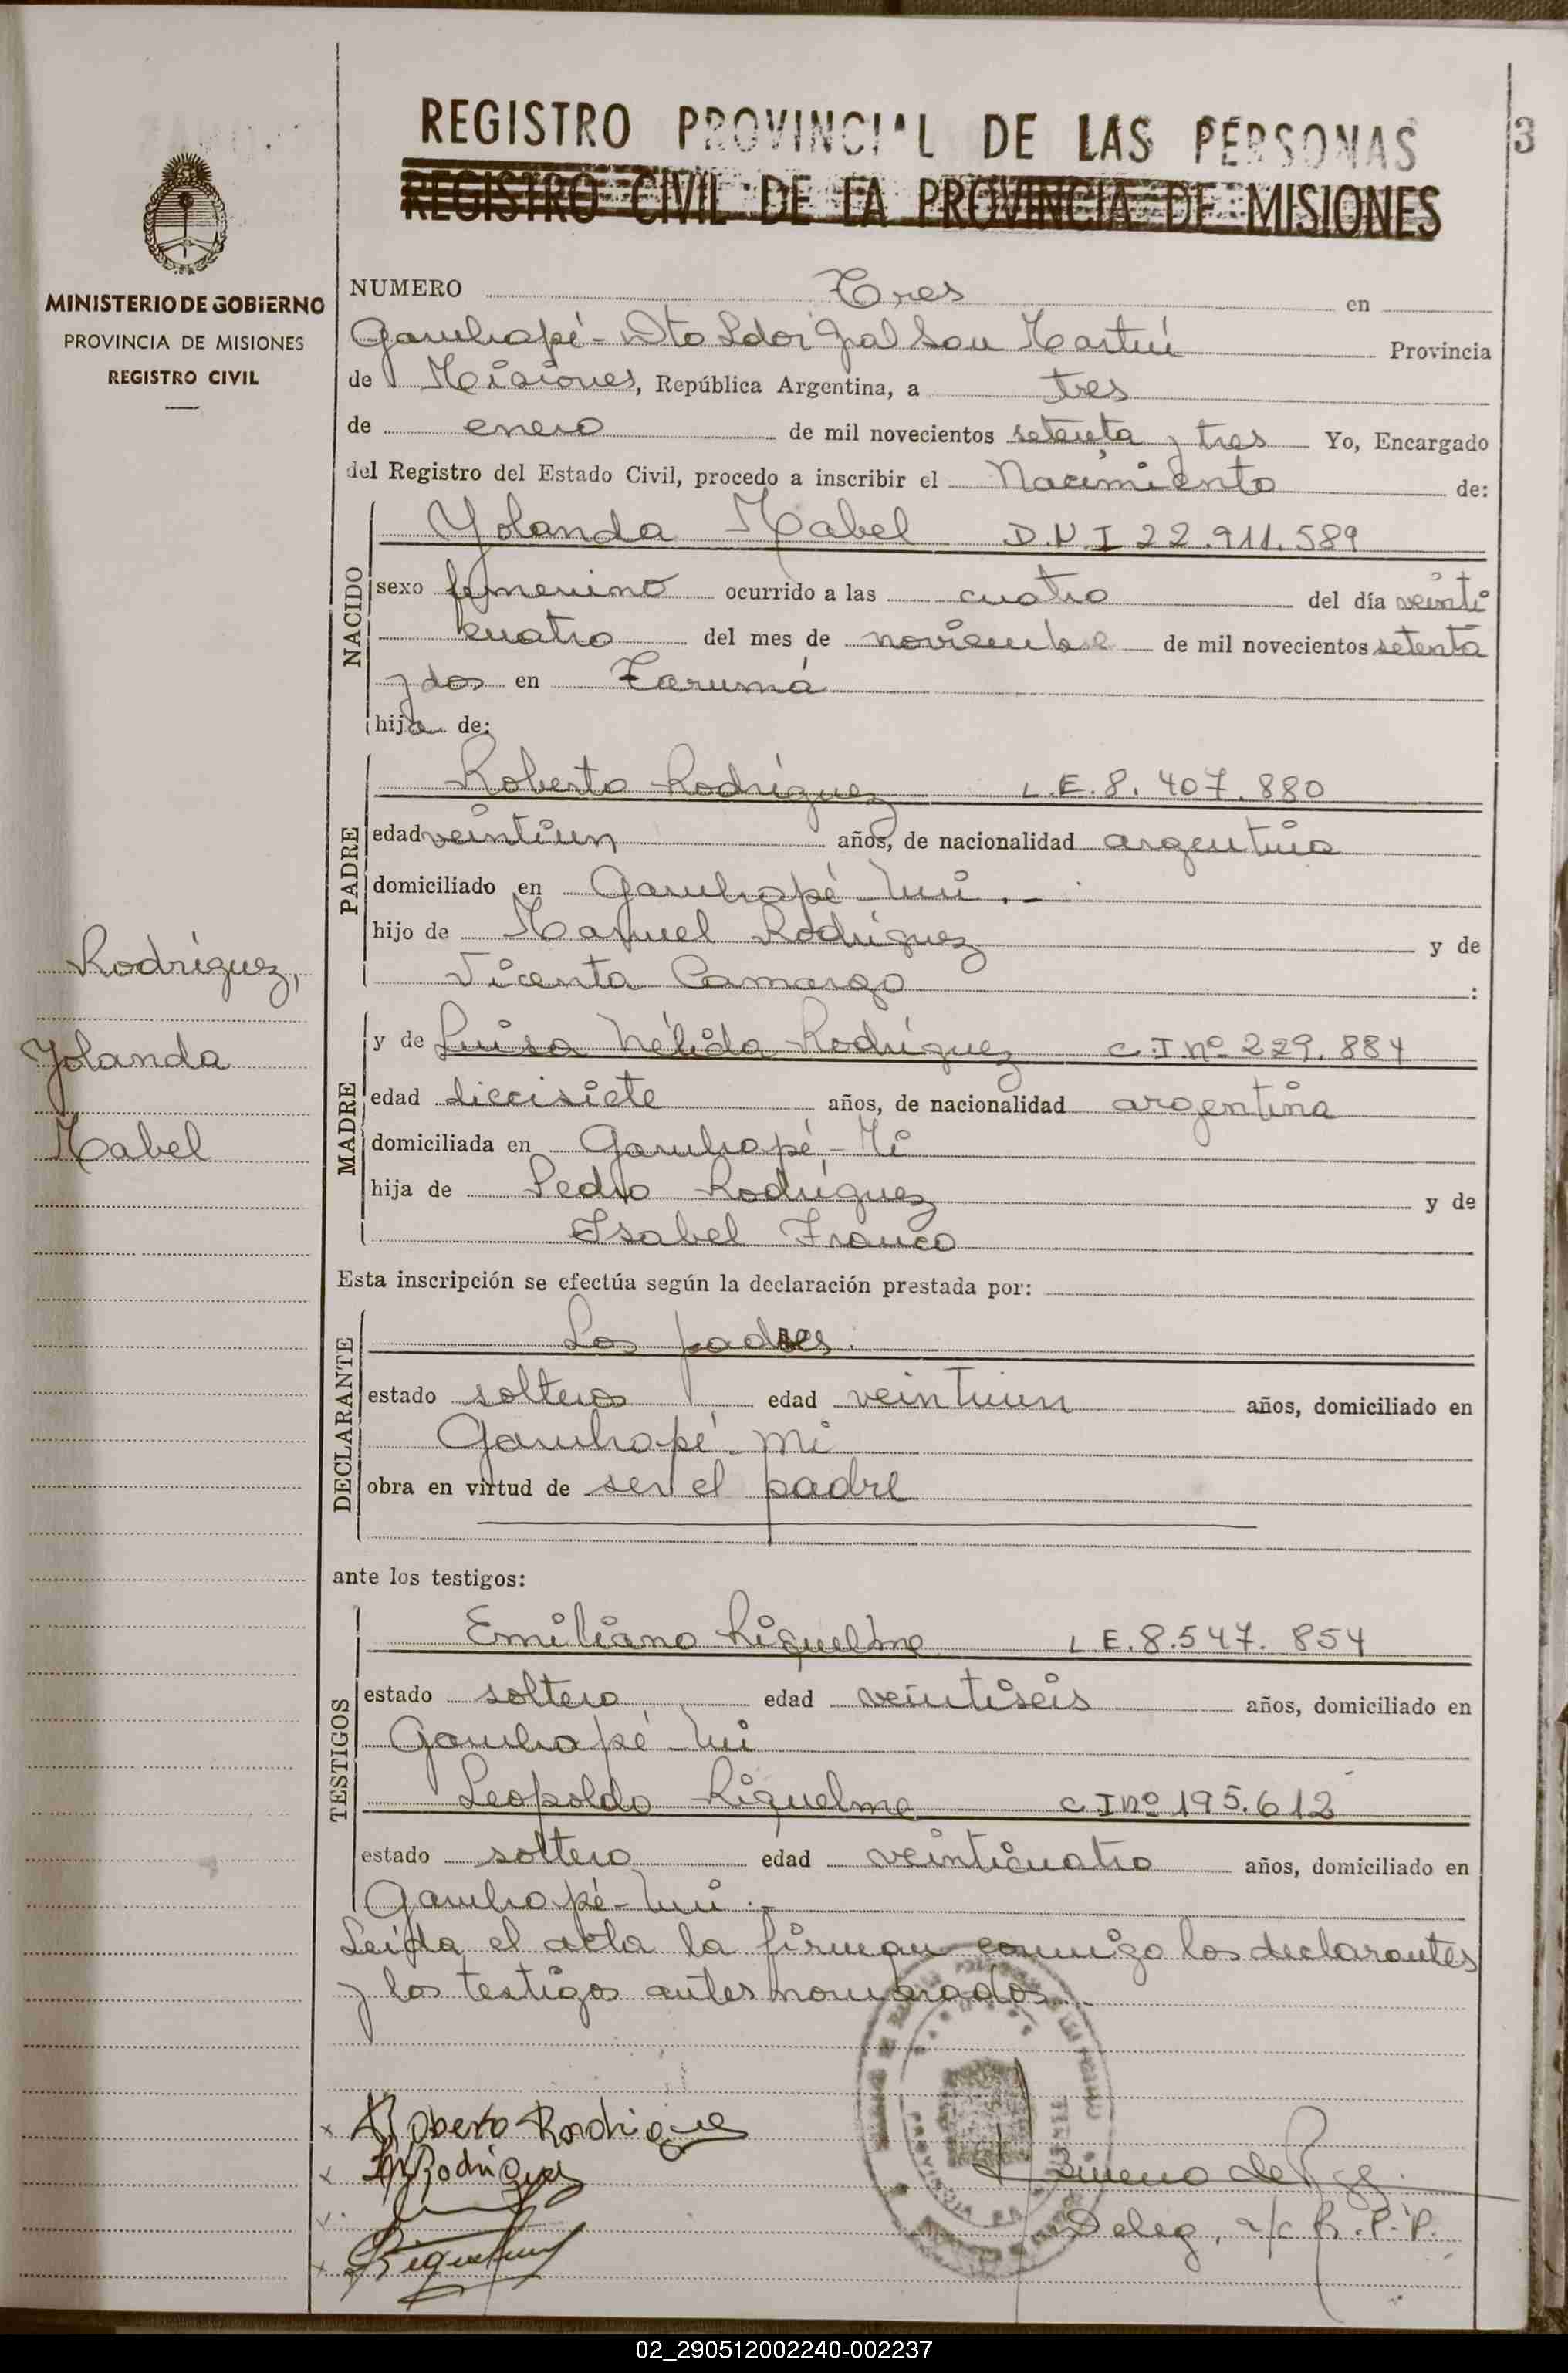 REGISTRO PROVINCIAL DE LAS PERSONAS
3
REGISTRO CIVIL DE LA PROVINCIA DE MISIONES
MINISTERIO DE GOBIERNO
PROVINCIA DE MISIONES
REGISTRO CIVIL
NUMERO Tres en
Garuhapé - Dto Ldor Gral San Martín Provincia
de Misiones, República Argentina, a tres
de enero de mil novecientos setenta y tres Yo, Encargado
del Registro del Estado Civil, procedo a inscribir el Nacimiento de:
NACIDO
Yolanda Mabel D.N.I 22.911.589
sexo femenino ocurrido a las cuatro del día veinti
cuatro del mes de noviembre de mil novecientos setenta
y dos en Tarumá
hija de:
PADRE
Roberto Rodríguez L.E. 8.407.880
edad veintiun años, de nacionalidad argentina
domiciliado en Garuhapé-Mi .-
hijo de Manuel Rodríguez y de
Vicenta Camargo :
Rodríguez,
Yolanda
Mabel
MADRE
y de Luisa Nélida Rodríguez C.I.nº 229.884
edad diecisiete años, de nacionalidad argentina
domiciliada en Garuhapé-Mi
hija de Pedro Rodríguez y de
Isabel Franco
Esta inscripción se efectúa según la declaración prestada por:
DECLARANTE
Los padres.
estado solteros edad veintiun años, domiciliado en
Garuhapé-mi
obra en virtud de ser el padre
ante los testigos:
TESTIGOS
Emiliano Riquelme L E. 8.547.854
estado soltero edad veintiseis años, domiciliado en
Garuhapé-Mi
Leopoldo Riquelme C I nº 195.612
estado soltero edad veinticuatro años, domiciliado en
Garuhapé-Mi.-
Leída el acta la firman conmigo los declarantes
y los testigos antes nombrados.-
x Roberto Rodriguez
x Rodriguez
x Riquelme
Deleg. a/c R.P.P.
02_290512002240-002237